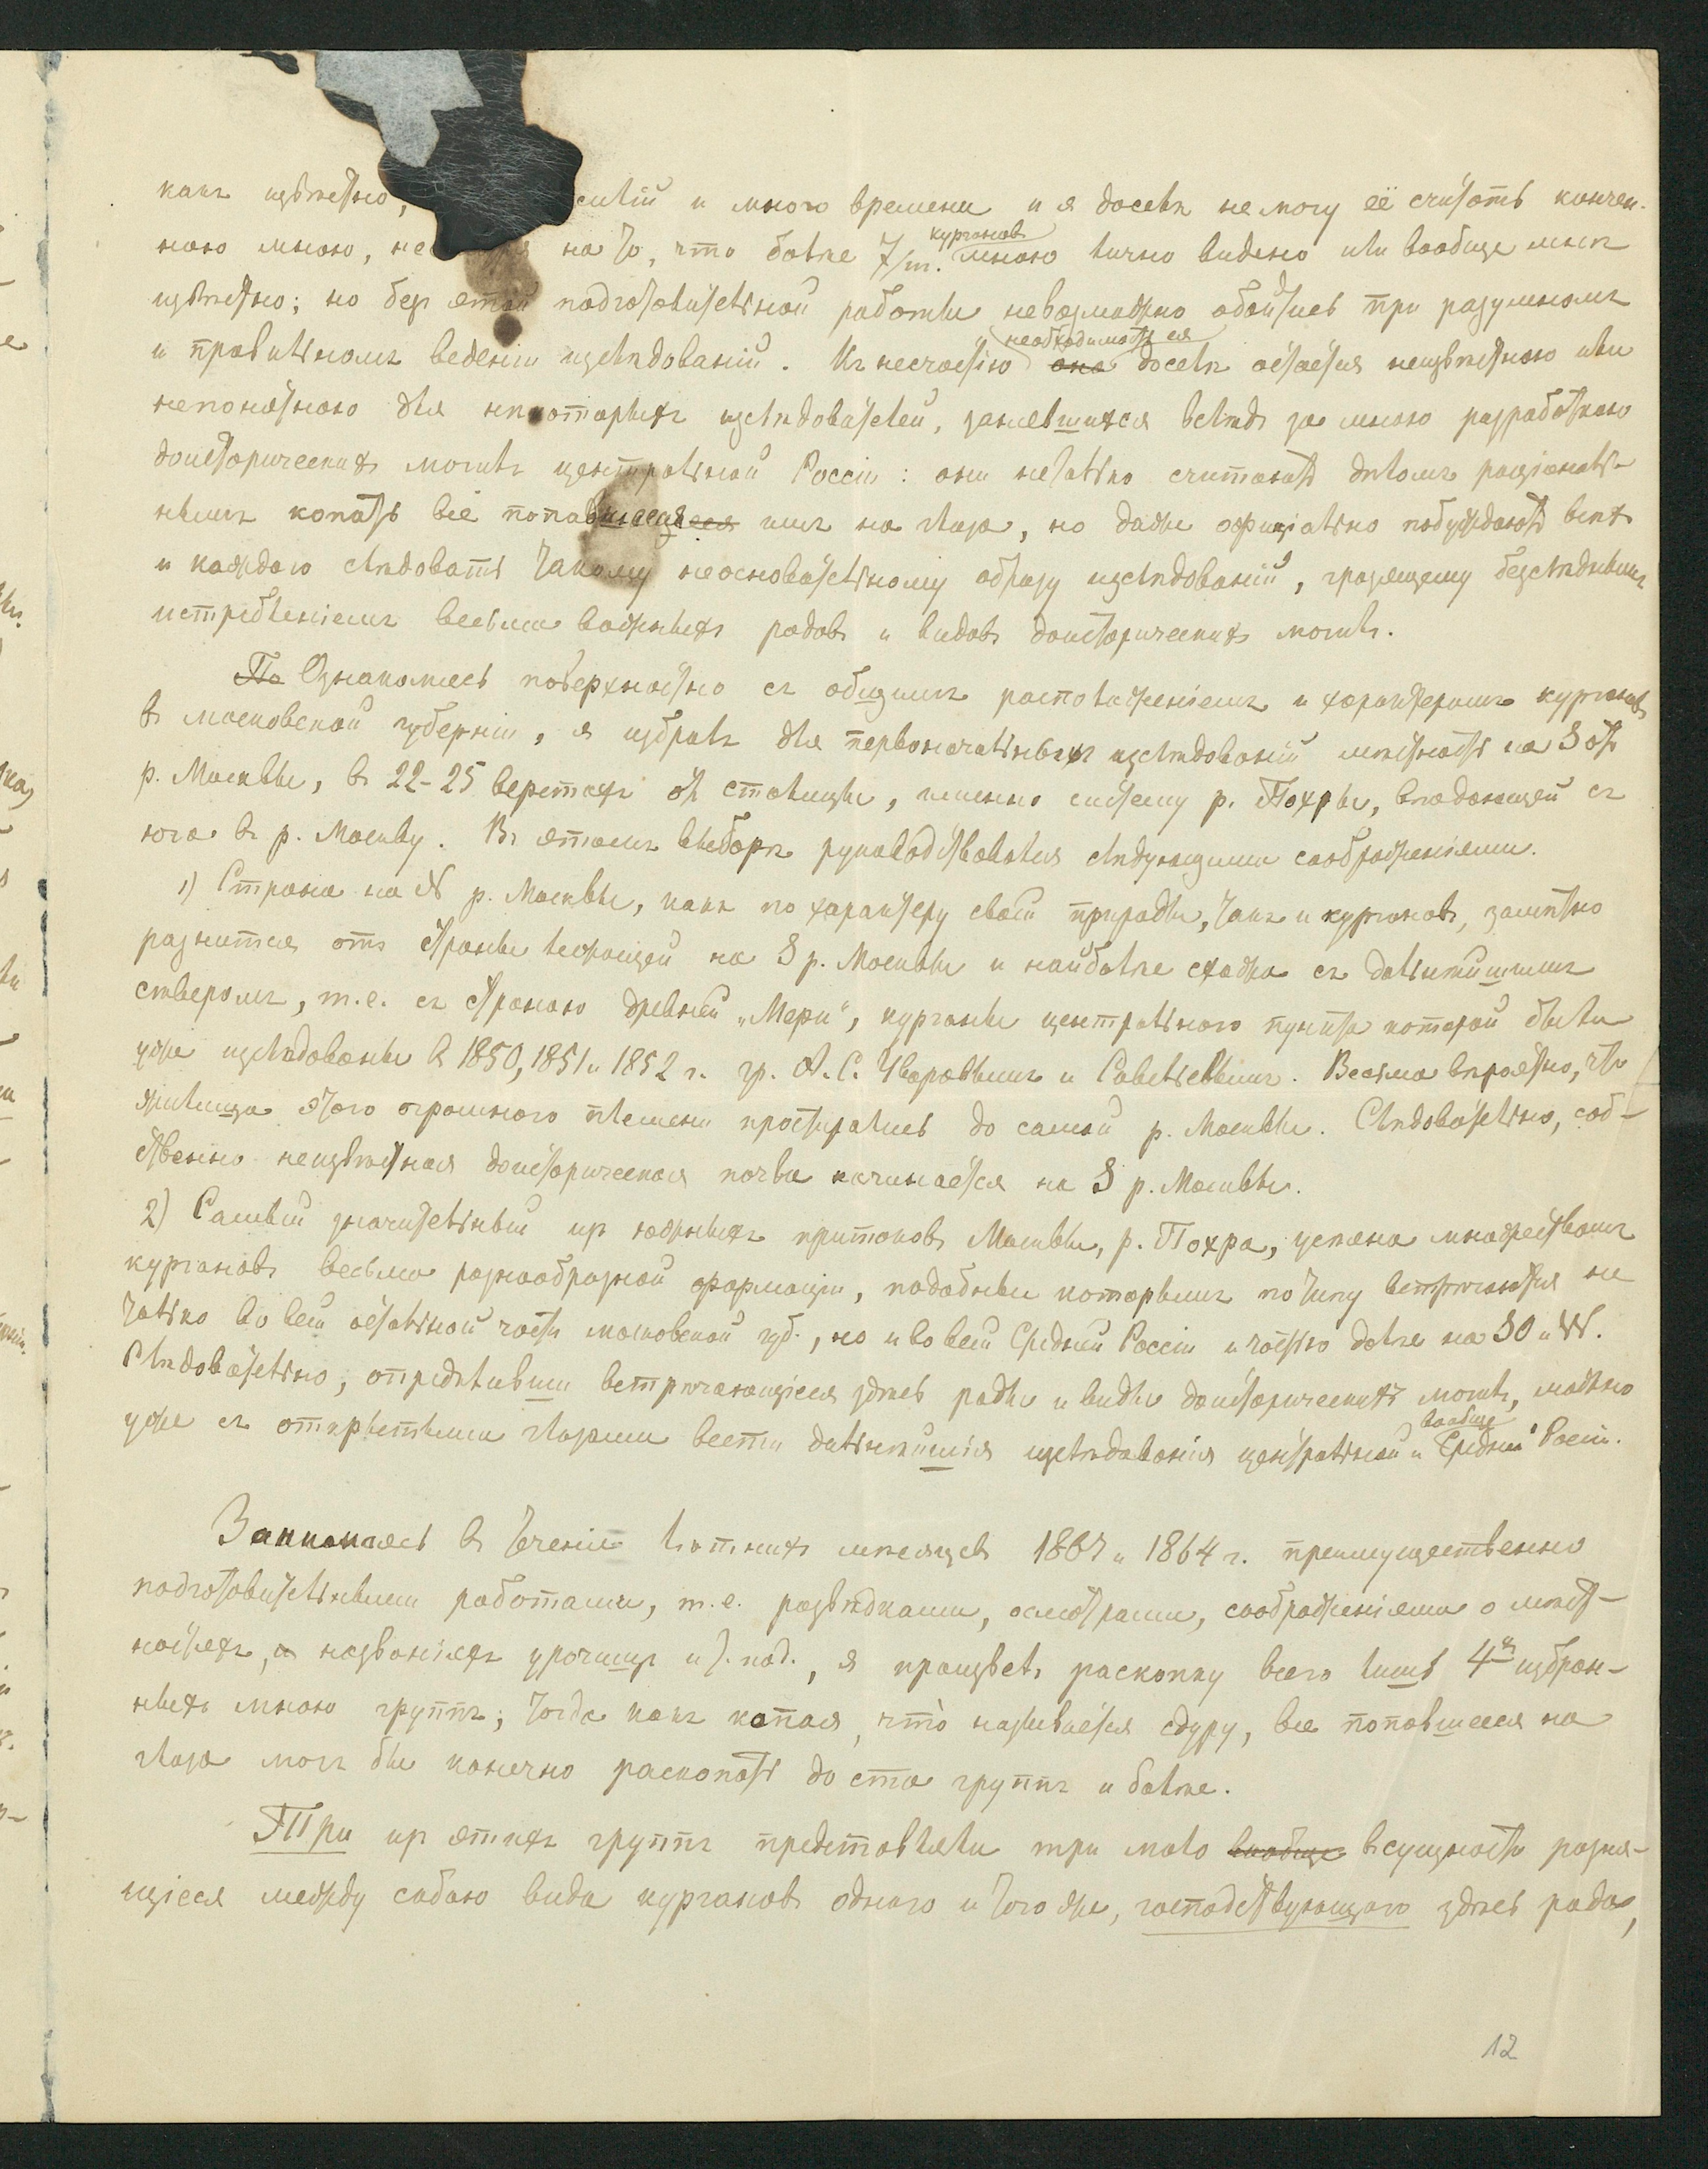 какъ извѣстно, силій и много времени и я доселѣ не могу её считать кончен-
ною мною, не на то, что болѣе 7/т. кургановъ мною лично видено или вообще мнѣ
извѣстно; но безъ этой подготовительной работы невозможно обойтись при разумномъ
и правильномъ веденіи изслѣдованій. Къ несчастію она необходимость ея доселѣ остаётся неизвѣстною или
непонятною для нѣкоторыхъ изслѣдователей, занявшихся вслѣдъ за мною разработкою
доисторическихъ могилъ центральной Россіи: они не только считаютъ дѣломъ раціональ-
нымъ копать всё попавшееся имъ на глаза, но даже офиціально побуждаютъ всѣхъ
и каждаго слѣдовать такому неосновательному образу изслѣдованій, грозящему безслѣднымъ
истребленіемъ весьма важныхъ родовъ и видовъ доисторическихъ могилъ.
По Ознакомясь поверхностно съ общимъ расположеніемъ и характеромъ кургановъ
въ московской губерніи, я избралъ для первоначальныхъ изслѣдованій мѣстность на S отъ
р. Москвы, въ 22-25 верстахъ отъ столицы, именно систему р. Пахры, впадающей съ
юга въ р. Москву. Въ этомъ выборѣ руководствовался слѣдующими соображеніями.
1) Страна на N р. Москвы, какъ по характеру своей природы, такъ и кургановъ, замѣтно
разнится отъ страны лежащей на S р. Москвы и наиболѣе сходна съ дальнѣйшимъ
сѣверомъ, т.е. съ страною древней „Мери“, курганы центральнаго пункта которой были
уже изслѣдованы въ 1850, 1851 и 1852 г. гр. А.С. Уваровымъ и Савельевымъ. Весьма вѣроятно, что
жилища этого огромного племени простирались до самой р. Москвы. Слѣдовательно, соб-
ственно неизвѣстная доисторическая почва начинается на S р. Москвы.
2) Самый значительный изъ южныхъ притоковъ Москвы, р. Похра, усѣяна множествомъ
кургановъ весьма разнообразной формаціи, подобные которымъ по типу встрѣчаются не
только во всей остальной части московской губ., но и во всей Средней Россіи и частію далѣе на SO и W.
Слѣдовательно, опредѣливши встрѣчающіеся здѣсь роды и виды доисторическихъ могилъ, можно
уже съ открытыми глазами вести дальнѣйшія изслѣдованія центральной и вообще Средней Россіи.
Занимаясь въ теченіе лѣтнихъ мѣсяцевъ 1867 и 1864 г. преимущественно
подготовительными работами, т.е. развѣдками, осмотрами, соображеніями о мѣст-
ностяхъ, и названіяхъ урочищъ и т. под., я произвелъ раскопку всего лишь 4хъ избран-
ныхъ мною группъ; тогда какъ копая, что̀ называется сдуру, все попавшееся на
глаза могъ бы конечно раскопать до ста группъ и болѣе.
Три изъ этихъ группъ представляли три мало вообще въ сущности разня-
щіеся между собою вида кургановъ одного и того же, господствующаго здѣсь рода,
12